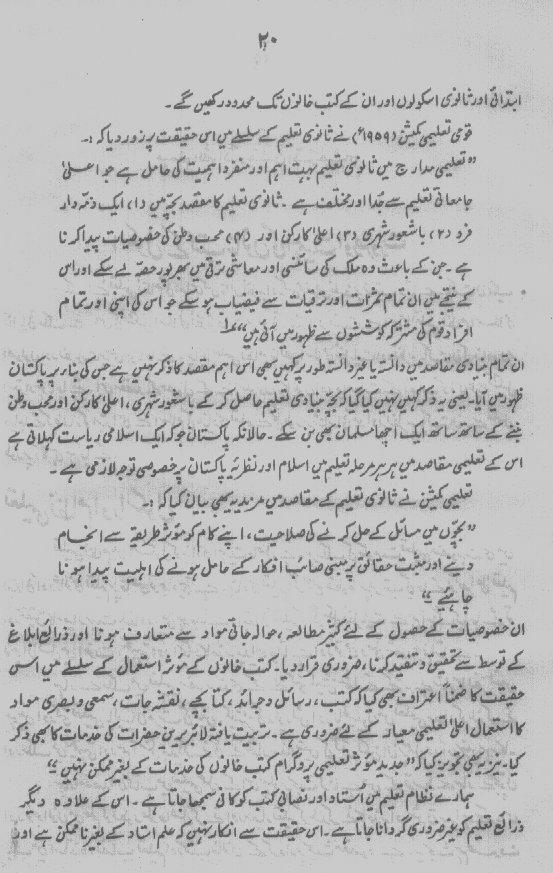 ۲۰
ابتدائی اور ثانوی اسکولوں اور ان کے کتب خانوں تک محدود رکھیں گے۔
قومی تعلیمی کمیشن (۱۹۵۹ء) نے ثانوی تعلیم کے سلسلے میں اس حقیقت پر زور دیا کہ :۔
”تعلیمی مدارج میں ثانوی تعلیم بہت اہم اور منفرد اہمیت کی حامل ہے جو اعلیٰ
جامعاتی تعلیم سے جُدا اور مختلف ہے۔ ثانوی تعلیم کا مقصد بچّہ میں (۱) ایک ذمّہ دار
فرد (۲) باشعور شہری (۳) اعلیٰ کارکن اور (۴) محب وطن کی خصوصیات پیدا کرنا
ہے۔ جن کے باعث وہ ملک کی سائنسی اور معاشی ترقی میں بھرپور حصّہ لے سکے اور اس
کے نتیجے میں ان تمام ثمرات اور ترقیات سے فیضیاب ہو سکے جو اس کی اپنی اور تمام
افراد قوم کی مشترکہ کوششوں سے ظہور میں آئی ہیں“
ان تمام بنیادی مقاصد میں دانستہ یا غیر دانستہ طور پر کہیں بھی اس اہم مقصد کا ذکر نہیں ہے جس کی بناء پر پاکستان
ظہور میں آیا۔ یعنی یہ ذکر کہیں نہیں کیا گیا کہ بچّہ بنیادی تعلیم حاصل کر کے باشعور شہری، اعلیٰ کارکن اور محب وطن
بننے کے ساتھ ساتھ ایک اچھا مسلمان بھی بن سکے۔ حالانکہ پاکستان جو کہ ایک اسلامی ریاست کہلاتی ہے
اس کے تعلیمی مقاصد میں ہر ہر مرحلہ تعلیم میں اسلام اور نظریۂ پاکستان پر خصوصی توجہ لازمی ہے۔
تعلیمی کمیشن نے ثانوی تعلیم کے مقاصد میں مزید یہ بھی بیان کیا کہ :۔
”بچّوں میں مسائل کے حل کرنے کی صلاحیت، اپنے کام کو مؤثر طریقہ سے انجام
دینے اور مثبت حقائق پر مبنی صائب افکار کے حامل ہونے کی اہلیت پیدا ہونا
چاہئیے“
ان خصوصیات کے حصول کے لئے کثیر مطالعہ، حوالہ جاتی مواد سے متعارف ہونا اور ذرائع ابلاغ
کے توسط سے تحقیق و تنقید کرنا، ضروری قرار دیا۔ کتب خانوں کے مؤثر استعمال کے سلسلے میں اس
حقیقت کا ضمناً اعتراف بھی کیا کہ کتب، رسائل و جرائد، کتابچے، نقشہ جات، سمعی و بصری مواد
کا استعمال اعلیٰ تعلیمی معیار کے لئے ضروری ہے۔ تربیت یافتہ لائبریرین حضرات کی خدمات کا بھی ذکر
کیا۔ نیز یہ بھی تجویز کیا کہ ”جدید مؤثر تعلیمی پروگرام کتب خانوں کی خدمات کے بغیر ممکن نہیں“
ہمارے نظام تعلیم میں اُستاد اور نصابی کتب کو کافی سمجھا جاتا ہے۔ اس کے علاوہ دیگر
ذرائع تعلیم کو غیر ضروری گردانا جاتا ہے۔ اس حقیقت سے انکار نہیں کہ علم استاد کے بغیر ناممکن ہے اور